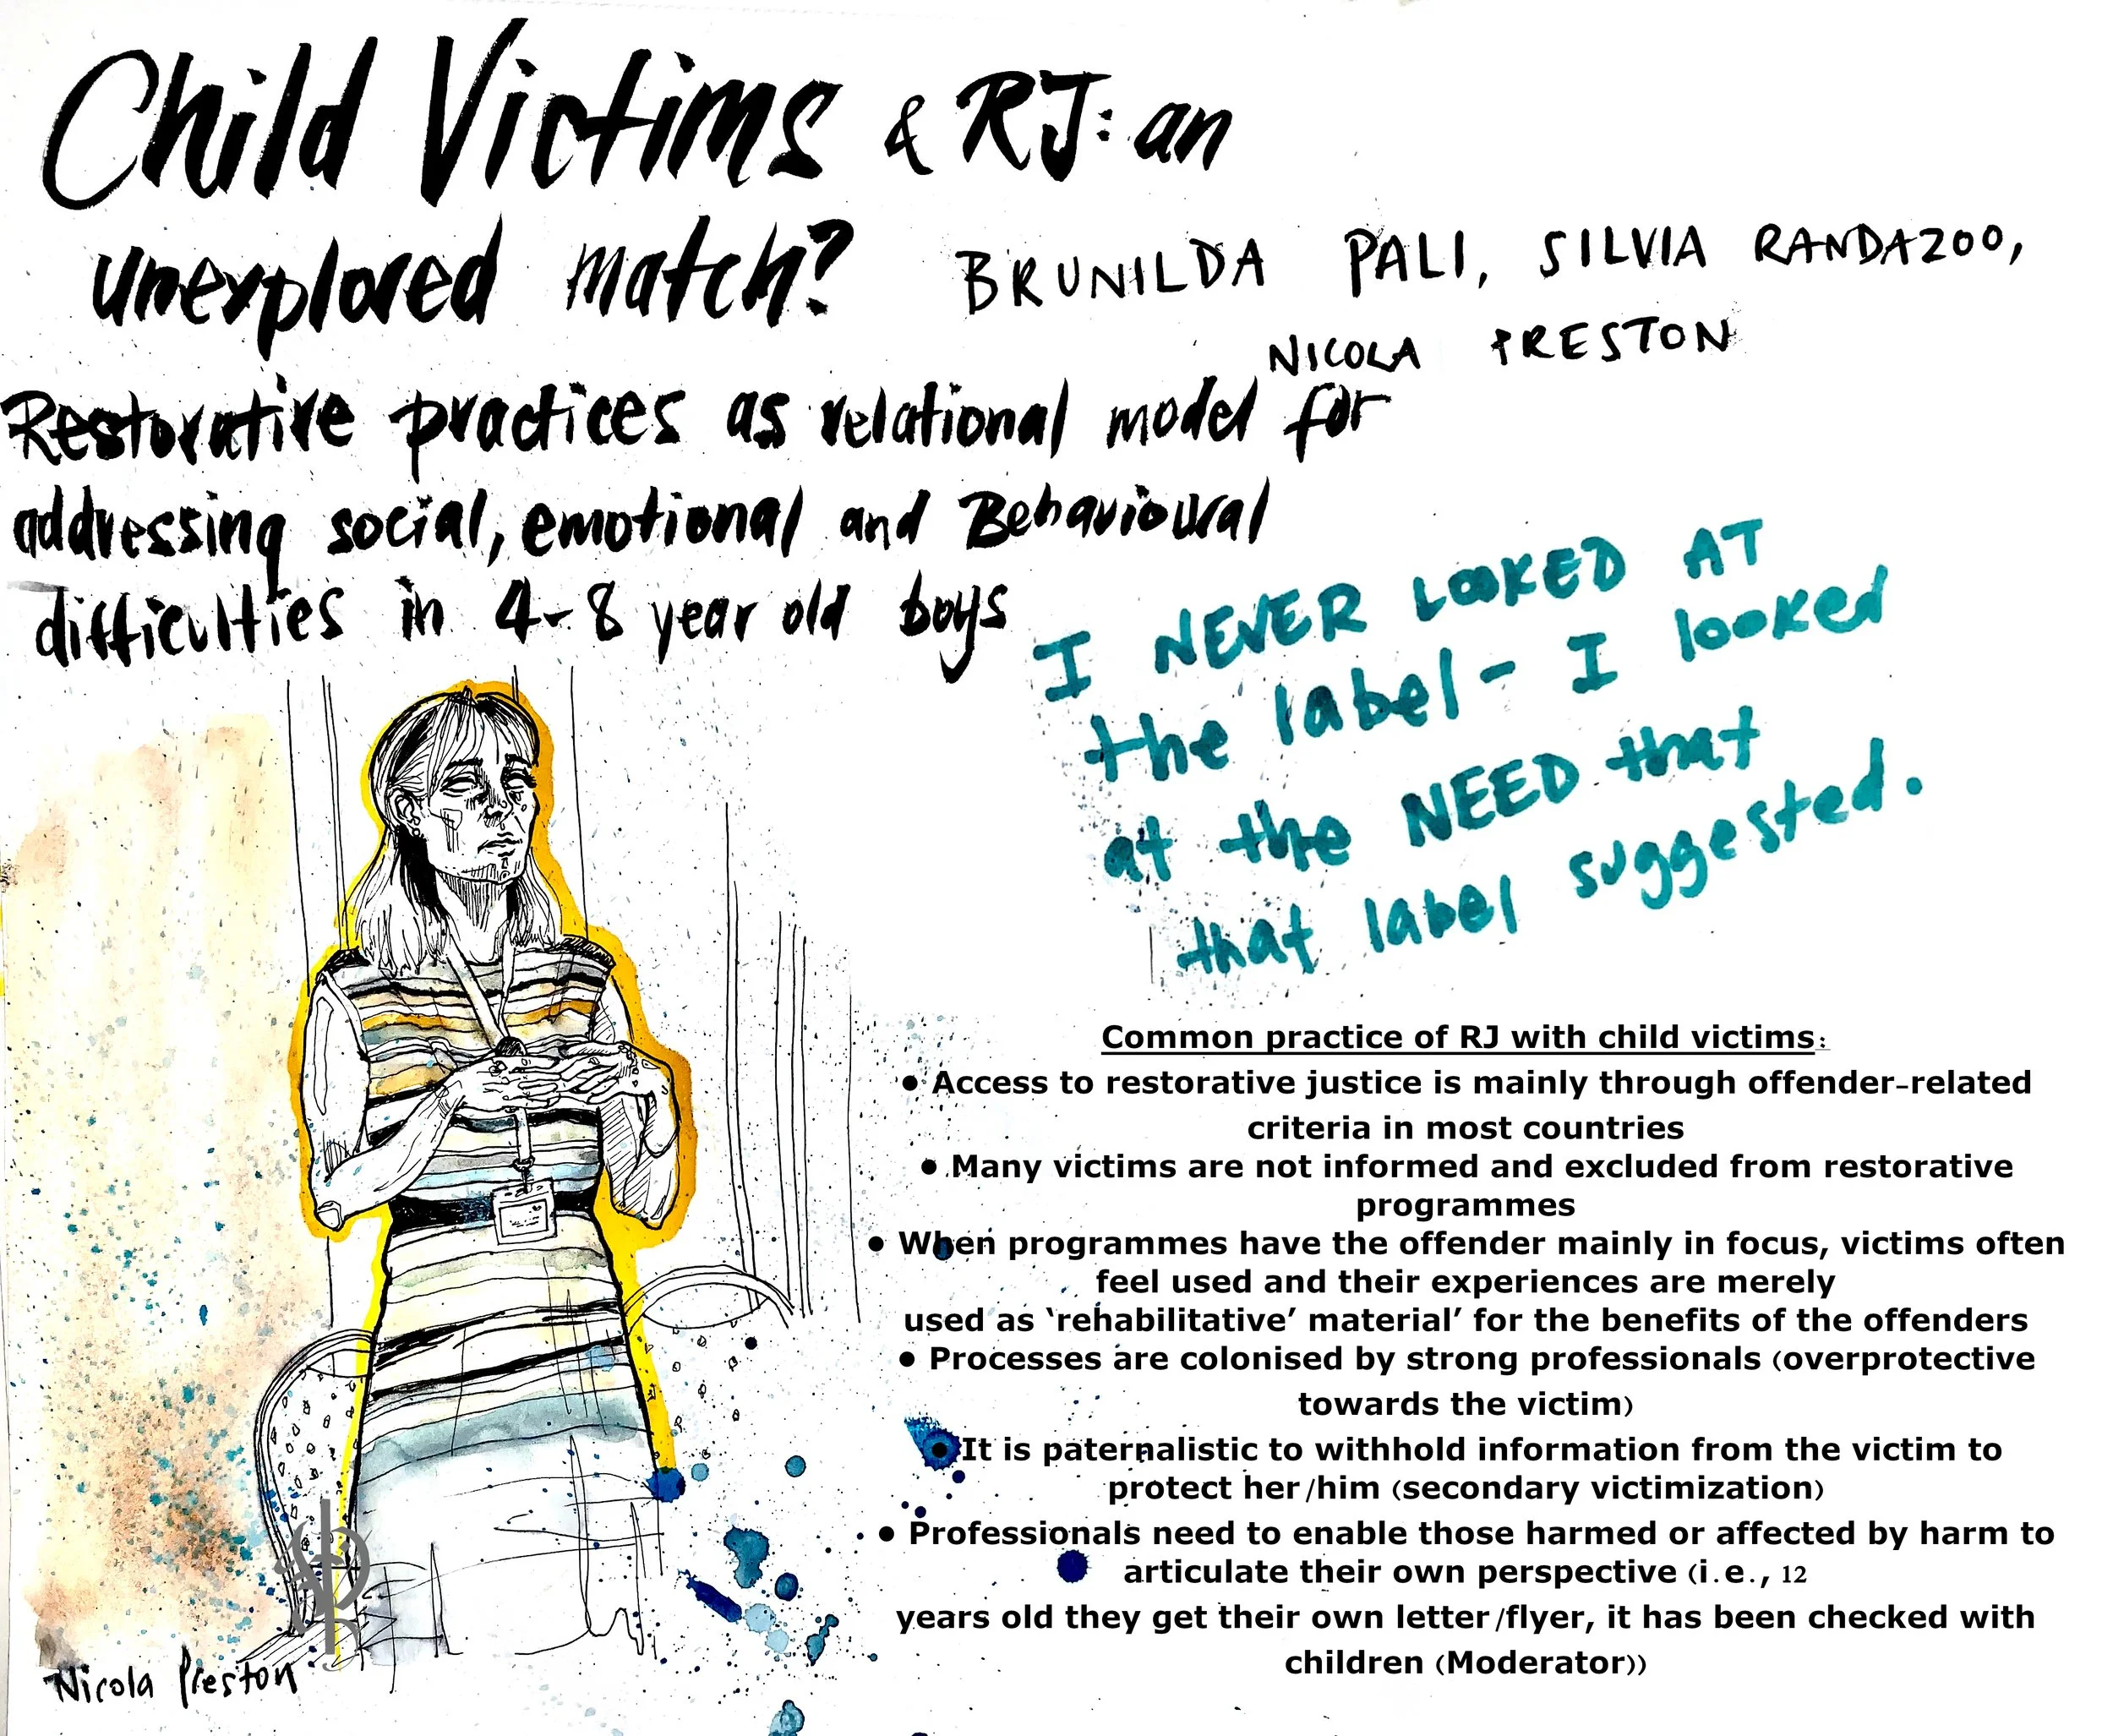 Child Victims & RJ: an
unexplored match?
BRUNILDA PALI, SILVIA RANDAZOO,
NICOLA PRESTON
Restorative practices as relational model for
addressing social, emotional and Behavioural
difficulties in 4-8 year old boys
I NEVER LOOKED AT
the label - I looked
at the NEED that
that label suggested.
Common practice of RJ with child victims:
• Access to restorative justice is mainly through offender-related
criteria in most countries
• Many victims are not informed and excluded from restorative
programmes
• When programmes have the offender mainly in focus, victims often
feel used and their experiences are merely
used as ‘rehabilitative’ material’ for the benefits of the offenders
• Processes are colonised by strong professionals (overprotective
towards the victim)
• It is paternalistic to withhold information from the victim to
protect her/him (secondary victimization)
• Professionals need to enable those harmed or affected by harm to
articulate their own perspective (i.e., 12
years old they get their own letter/flyer, it has been checked with
children (Moderator))
Nicola Preston